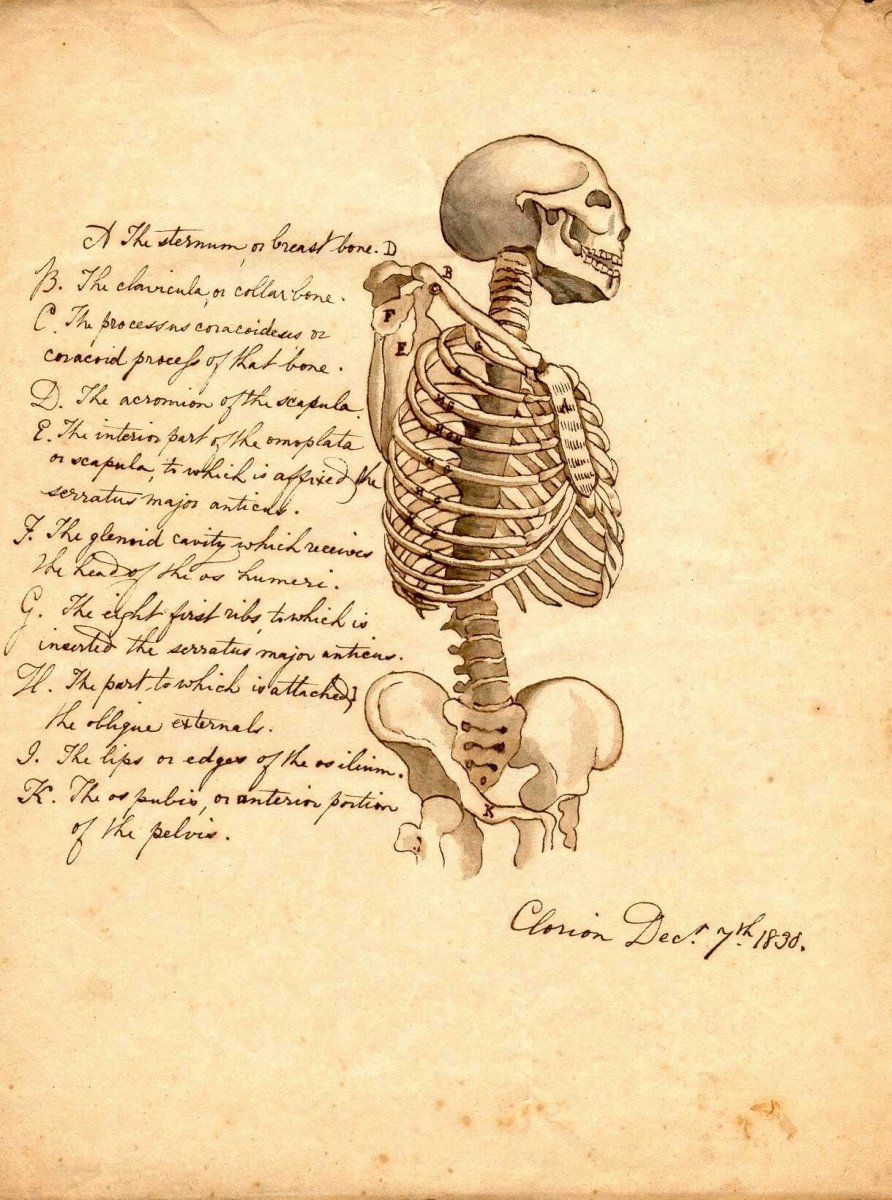 A The sternum, or breast bone. D
B. The clavicula, or collar bone. B
C. The processus coracoideus or C
coracoid process of that bone. F
D. The acromion of the scapula.
E. The interior part of the omoplata E
or scapula, to which is affixed the
serratus major anticus.
F. The glenoid cavity which receives
the head of the os humeri.
G. The eight first ribs, to which is
inserted the serratus major anticus.
H. The part to which is attached
the oblique externals.
I. The lips or edges of the os ilium.
K. The os pubis, or anterior portion
of the pelvis.
G
G
A
K
Clorion Decr. 7th. 1830.